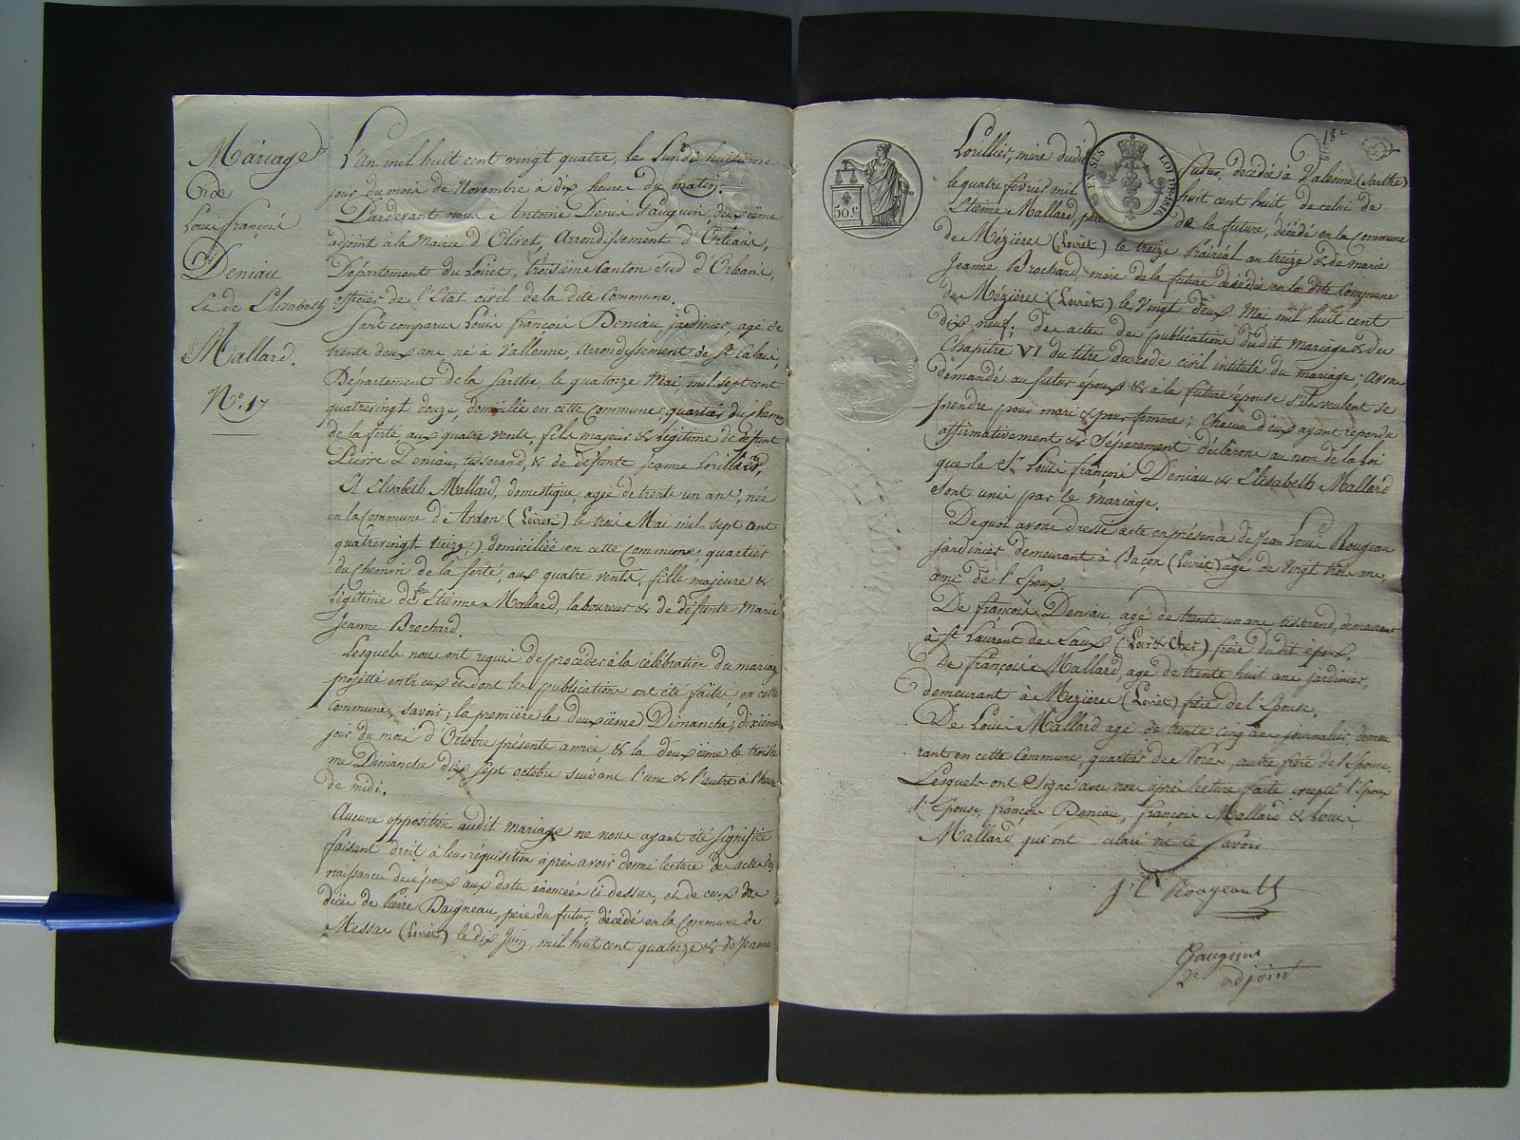 Mariage
N.º 17
De
Louis françois
Deniau
Et de Elisabeth
Mallard.
L'An mil huit cent vingt quatre, le Lundi huitième
jour du mois de Novembre à dix heures du matin.
Pardevant nous Antoine Denis Gauguin, deuxième
adjoint à la Mairie d'Olivet, Arrondissement d'Orléans,
Département du Loiret, troisième Canton Sud d'Orléans,
officier de l'Etat civil de la dite Commune.
Sont comparus Louis françois Deniau, jardinier, agé de
trente deux ans, né à Vallenne, Arrondissement de St Calais,
Département de la Sarthe, le quatorze Mai mil sept cent
quatrevingt douze, domicilié en cette Commune, quartier du chemin
de la ferté, aux quatre vents, fils majeur & légitime de défunt
Pierre Deniau, tisserand, & de défunte Jeanne Loriller,
Et Elisabeth Mallard, domestique, agée de trente un ans, née
en la Commune d'Ardon (Loiret) le Mai mil sept cent
quatrevingt treize, domiciliée en cette Commune, quartier
du chemin de la ferté, aux quatre vents, fille majeure &
légitime de Etienne Mallard, laboureur & de défunte Marie
Jeanne Brochard.
Lesquels nous ont requis de procéder à la célébration du mariage
projetté entr'eux et dont les publications ont été faites en cette
Commune, savoir; la première le deuxième Dimanche, dixième
jour du mois d'Octobre présente année & la deuxième le troisiè
me Dimanche dix sept octobre suivant l'une & l'autre à l'heure
de midi.
Aucune opposition audit mariage ne nous ayant été signifiée
faisant droit à leur réquisition après avoir donné lecture des actes de
naissance des époux aux dates énoncées ci dessus, et de ceux de
décès de Pierre Daigneau, père du futur, décédé en la Commune de
Messas (Loiret) le dix Juin, mil huit cent quatorze & de Jeanne
50 c
LOI DE
Lorillier, mère dudit futur, décédée à Valenne (Sarthe)
le quatre février mil huit cent huit de celui de
Etienne Mallard, père de la future, décédé en la Commune
de Mézières (Loiret) le treize Prairéal an treize & de marie
Jeanne Brochard mère de la future décédée en la dite Commune
de Mézières (Loiret) le Vingt deux Mai mil huit cent
dix neuf; des actes de publications dudit mariage & du
Chapitre VI du titre du code civil intitulé du mariage; Avons
demandé au futur époux & à la future épouse s'ils veulent se
prendre pour mari & pour femme; Chacun d'eux ayant répondu
affirmativement & séparément déclarons au nom de la loi
que le Sr Louis françois Deniau & Elisabeth Mallard
sont unis par le mariage.
De quoi avons dressé acte en présence de Jean Louis Rougeau
jardinier demeurant à Bacon (Loiret) agé de Vingt trois ans,
ami de l'Epoux,
De françois Deniau, agé de trente un ans tisserand, demeurant
à St Laurent des Eaux (Loir & Cher) frère dudit époux,
De françois Mallard, agé de trente huit ans jardinier,
demeurant à Mezières (Loiret) frère de l'Epouse,
De Louis Mallard agé de trente cinq ans journalier, demeu
rant en cette Commune, quartier des autre frère de l'Epouse.
Lesquels ont signé avec nous après lecture faite excepté l'Epoux
l'Epouse, françois Deniau, françois Mallard & Louis
Mallard qui ont déclaré ne le savoir
J. L. Rougeault
Gauguin
2e adjoint